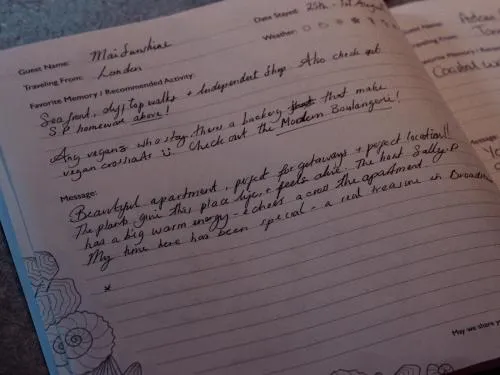 Guest Name: Mai Sunshine
Date Stayed: 25th - 1st August
Traveling From: London
Weather:
Favorite Memory / Recommended Activity:
Seafront, clifftop walks + independent shop. Also check out
S.P. homeware above!
Any vegans who stay, there's a bakery that make
vegan croissants Check out the Modern Boulangerie!
Message:
Beautiful apartment, perfect for getaways + perfect location!
The plants give this place life, it feels alive. The host Sally.P
has a big warm energy - echoes across the apartment.
My time here has been special - a real treasure in
Guest Name:
Traveling From:
Favorite Memory / Reco
Coastal
Message:
May we share yo